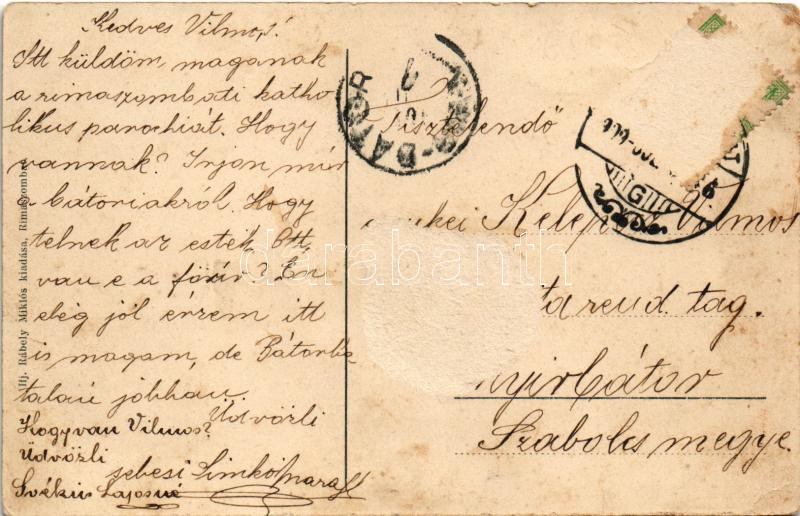 Kedves Vilmos!
Itt küldöm magának
a rimaszombati katho
likus parochiát. Hogy
vannak? Irjon már
a bátoriakról. Hogy
telnek az esték. Ott
van e a főúr? Én
elég jól érzem itt
is magam, de Bátorba
talán jobban.
Üdvözli
sebesi Simkó
Hogy van Vilmos?
Üdvözli
Lajosné
Ifj. Rábely Miklós kiadása, Rimaszombat
Tisztelendő
Vilmos
rend tag.
Nyirbátor
Szabolcs megye.
BÁTOR
darabanth